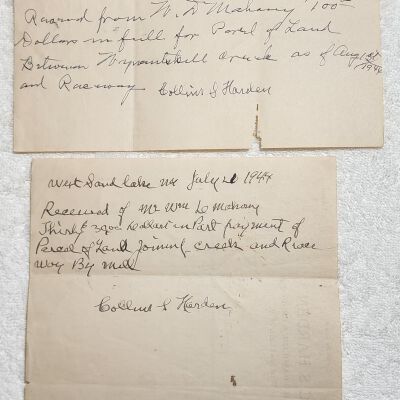 Received from W. D Mahany 100 00
Dollars in full for Parcel of Land
Between Wynantskill creek as of Aug 1st 1944
and Raceway
Collins S Harden
West Sand lake NY July 21 1944
Received of Mr Wm D Mahany
Dollars in Part payment of
Parcel of Land Joining creek and Race
Way By Mill
Collins S Harden